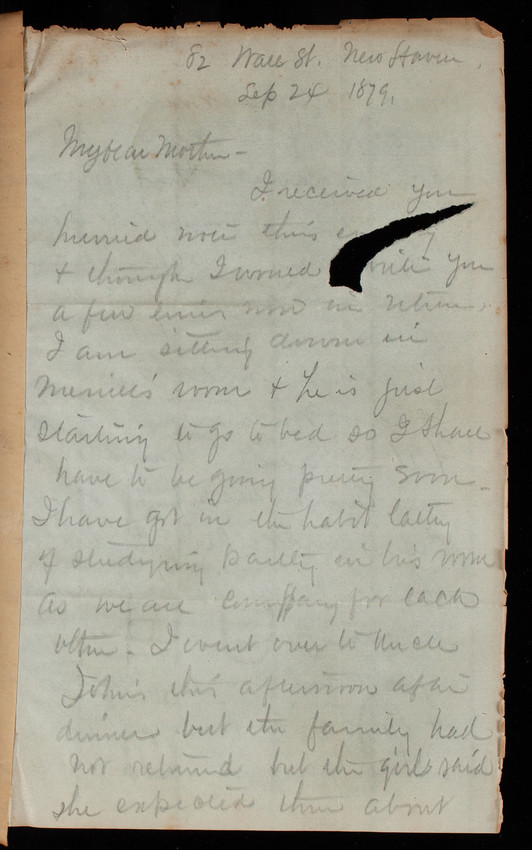 82 Wall St. New Haven,
Sep 24 1879.
My dear Mother -
I received your
hurried note this
& though I would write you
a few lines now in return.
I am sitting down in
Merrill's room & he is just
starting to go to bed so I shall
have to be going pretty soon -
I have got in the habit lately
of studying partly in his room
as we are company for each
other. I went over to Uncle
John's this afternoon after
dinner but the family had
not returned but the girl said
she expected them about